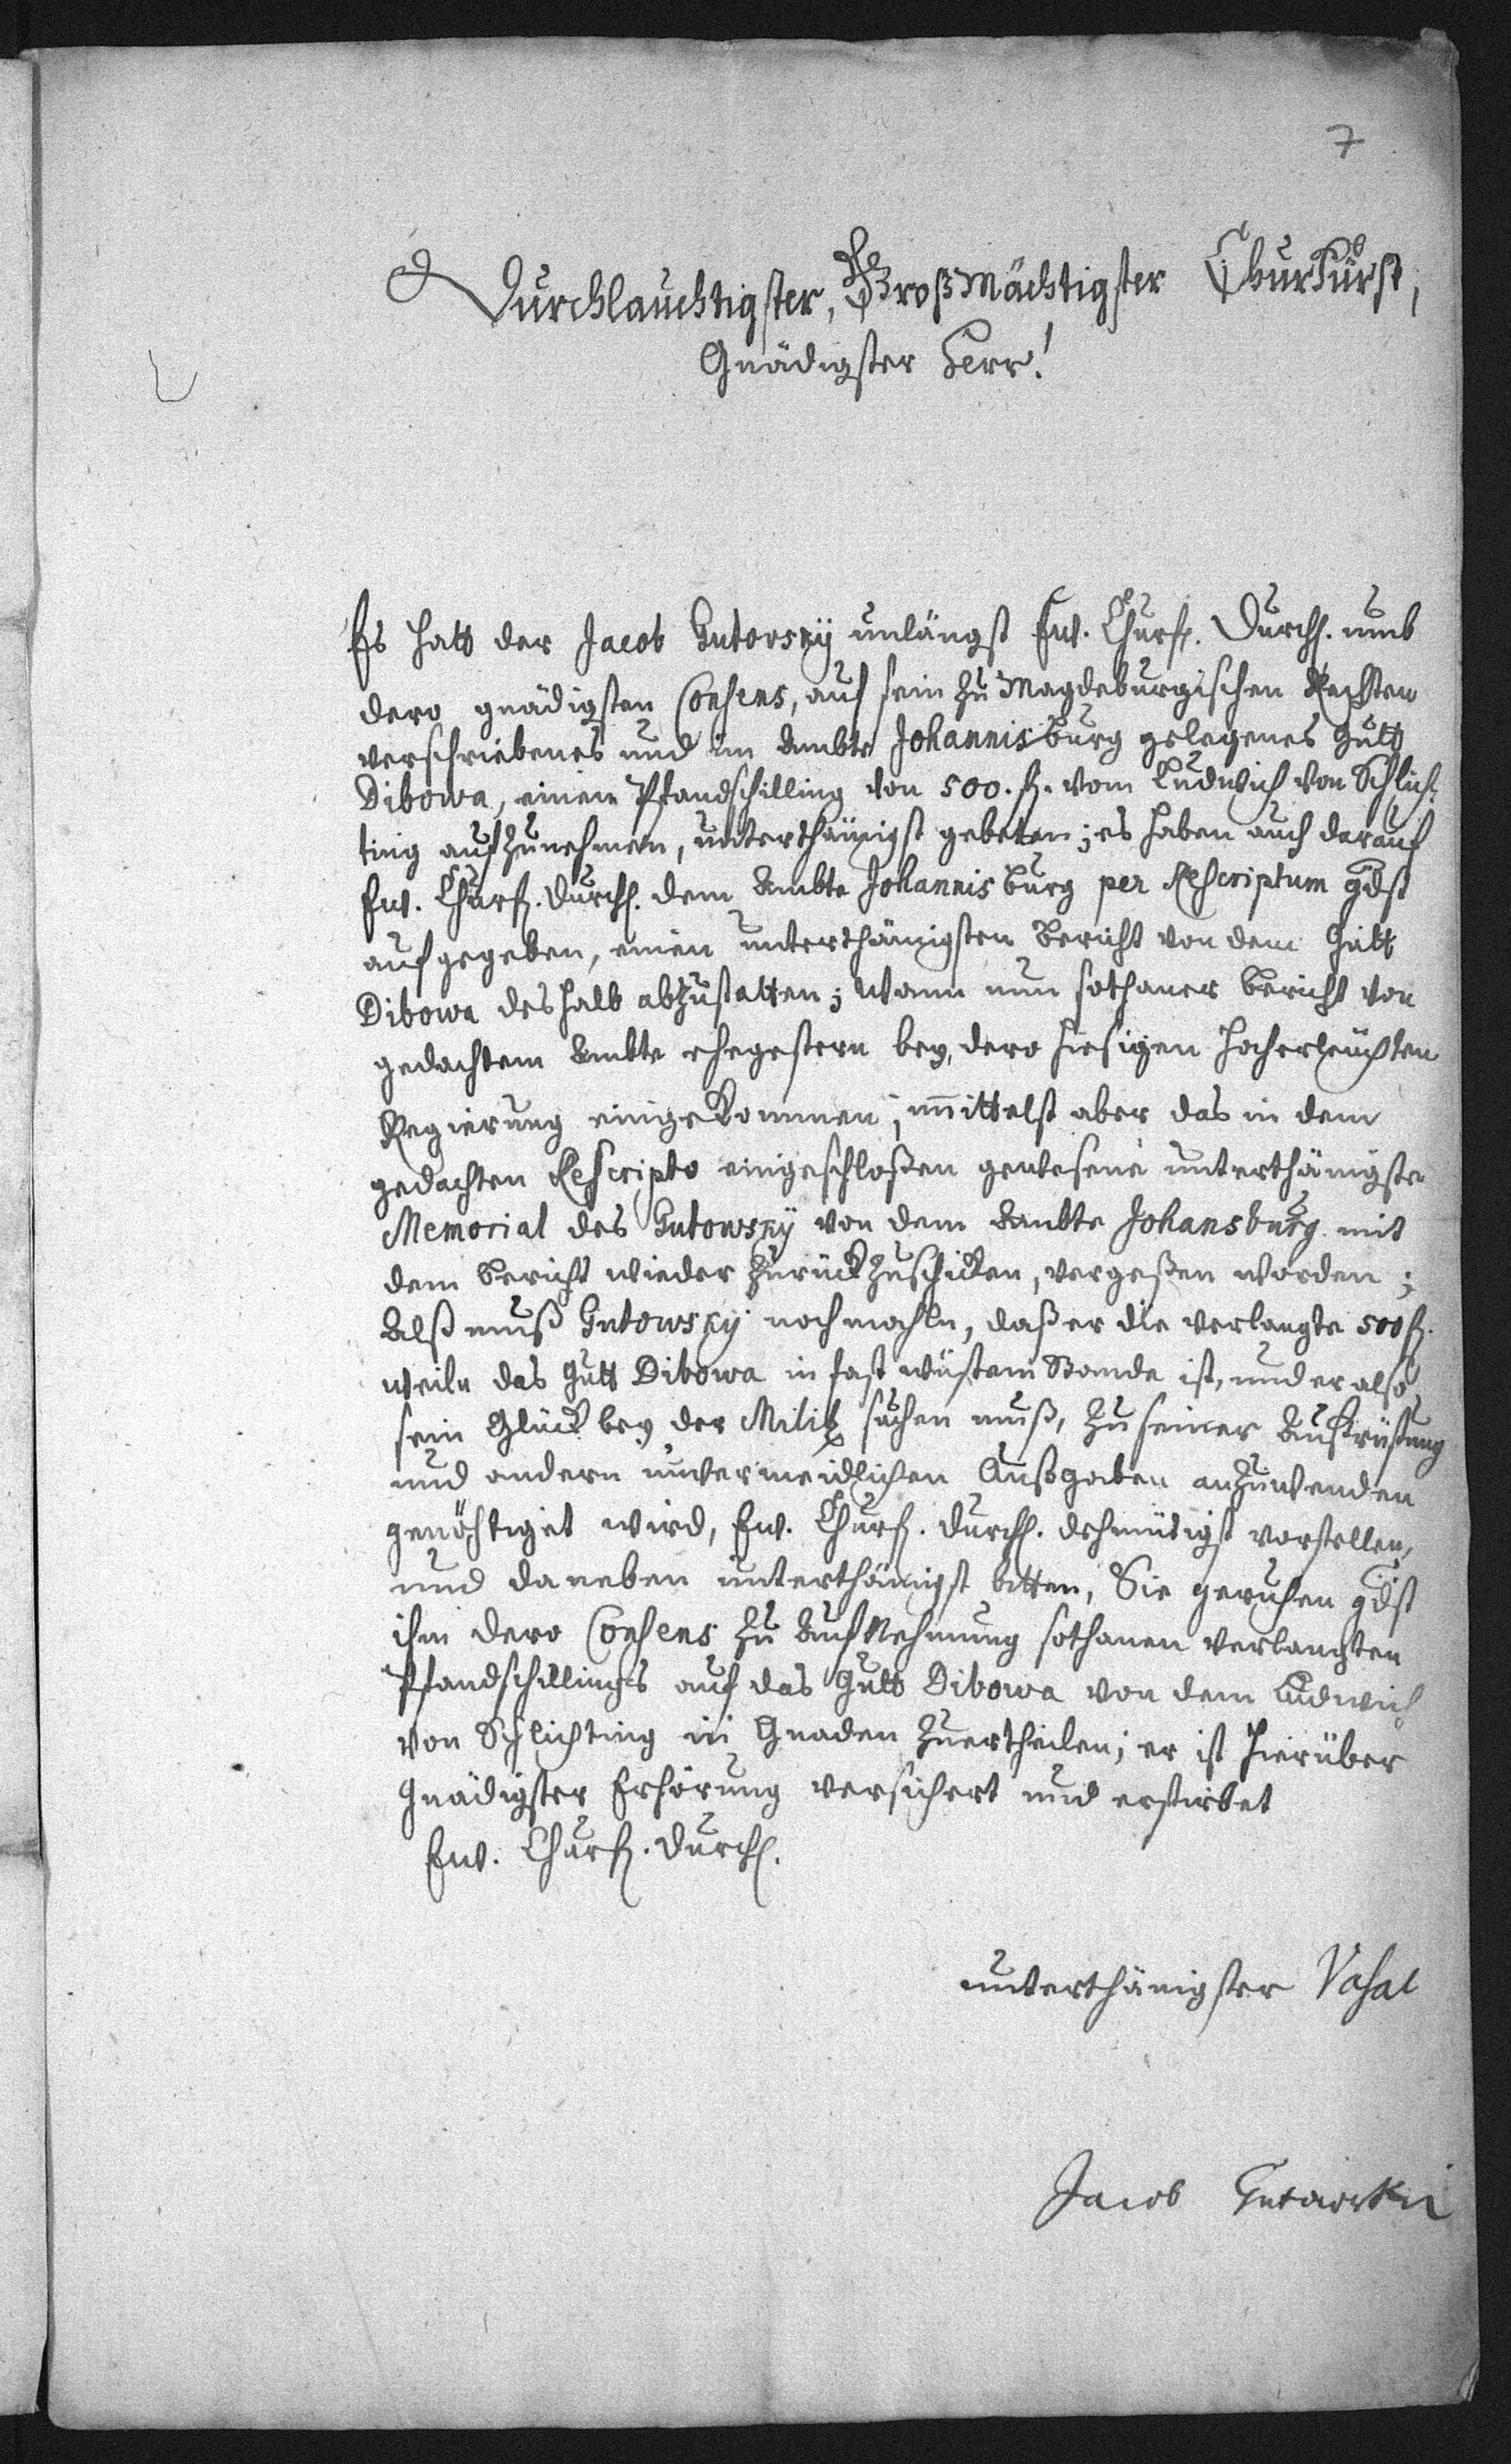 7
Durchlauchtigster, Großmächtigster Churfürst,
Gnädigster Herr!
Es hatt der Jacob Gutowsky unlängst Ew. Churfl. Durchl. umb
dero gnädigsten Consens, auf sein zu Magdeburgischen Rechten
verschriebenes und im Ambte Johannisburg gelegenes Gutt
Dibowa, einen Pfandschilling von 500. fl. vom Ludwich von Schlich-
ting aufzunehmen, unterthänigst gebeten; es haben auch darauf
Ew. Churfl. Durchl. dem Ambte Johannisburg per Rescriptum gdst
aufgegeben, einen unterthänigsten Bericht von dem Gutt
Dibowa deshalb abzustatten; Wann nun sothaner Bericht von
gedachtem Ambte ehegestern bey dero hiesigen Hocherleuchten
Regierung eingekommen; immittelst aber das in dem
gedachten Rescripto eingeschloßen gewesene unterthänigste
Memorial des Gutowsky von dem Ambte Johansburg mit
dem Bericht wieder zurückzuschicken, vergeßen worden;
Alß muß Gutowsky nochmahln, daß er die verlangte 500 fl.
weiln das Gutt Dibowa in fast wüstem Stande ist, und er also
sein Glück bey der Militz suchen muß, zu seiner Außrüstung
und andern unvermeidlichen Außgaben anzuwenden
genöhtiget wird, Ew. Churfl. Durchl. dehmütigst vorstellen,
und daneben unterthänigst bitten, Sie geruhen gdst
ihm dero Consens zu Aufnehmung sothanen verlangten
Pfandschillings auf das Gutt Dibowa von dem Ludwich
von Schlichting in Gnaden zuertheilen; er ist hierüber
Gnädigster Erhörung versichert und erstirbet
Ew. Churfl. Durchl.
unterthänigster Vasal
Jacob Gutowski